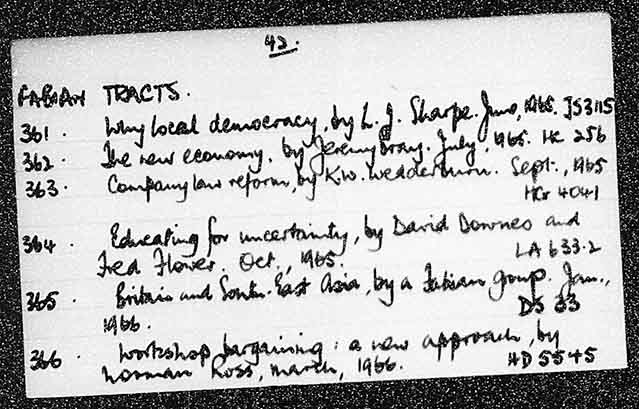 42.
FABIAN TRACTS.
361. Why local democracy, by L. J. Sharpe. June, 1965. JS3115
362. The new economy, by Jeremy Bray. July, 1965. HC 256
363. Company law reform, by K.W. Wedderburn. Sept., 1965
HG 4041
364. Educating for uncertainty, by David Downes and
Fred Flower. Oct., 1965. LA 633.2
365. Britain and South-East Asia, by a Fabian group. Jan.,
1966. DS 33
366. Workshop bargaining: a new approach, by
Norman Ross, March, 1966. HD 5545